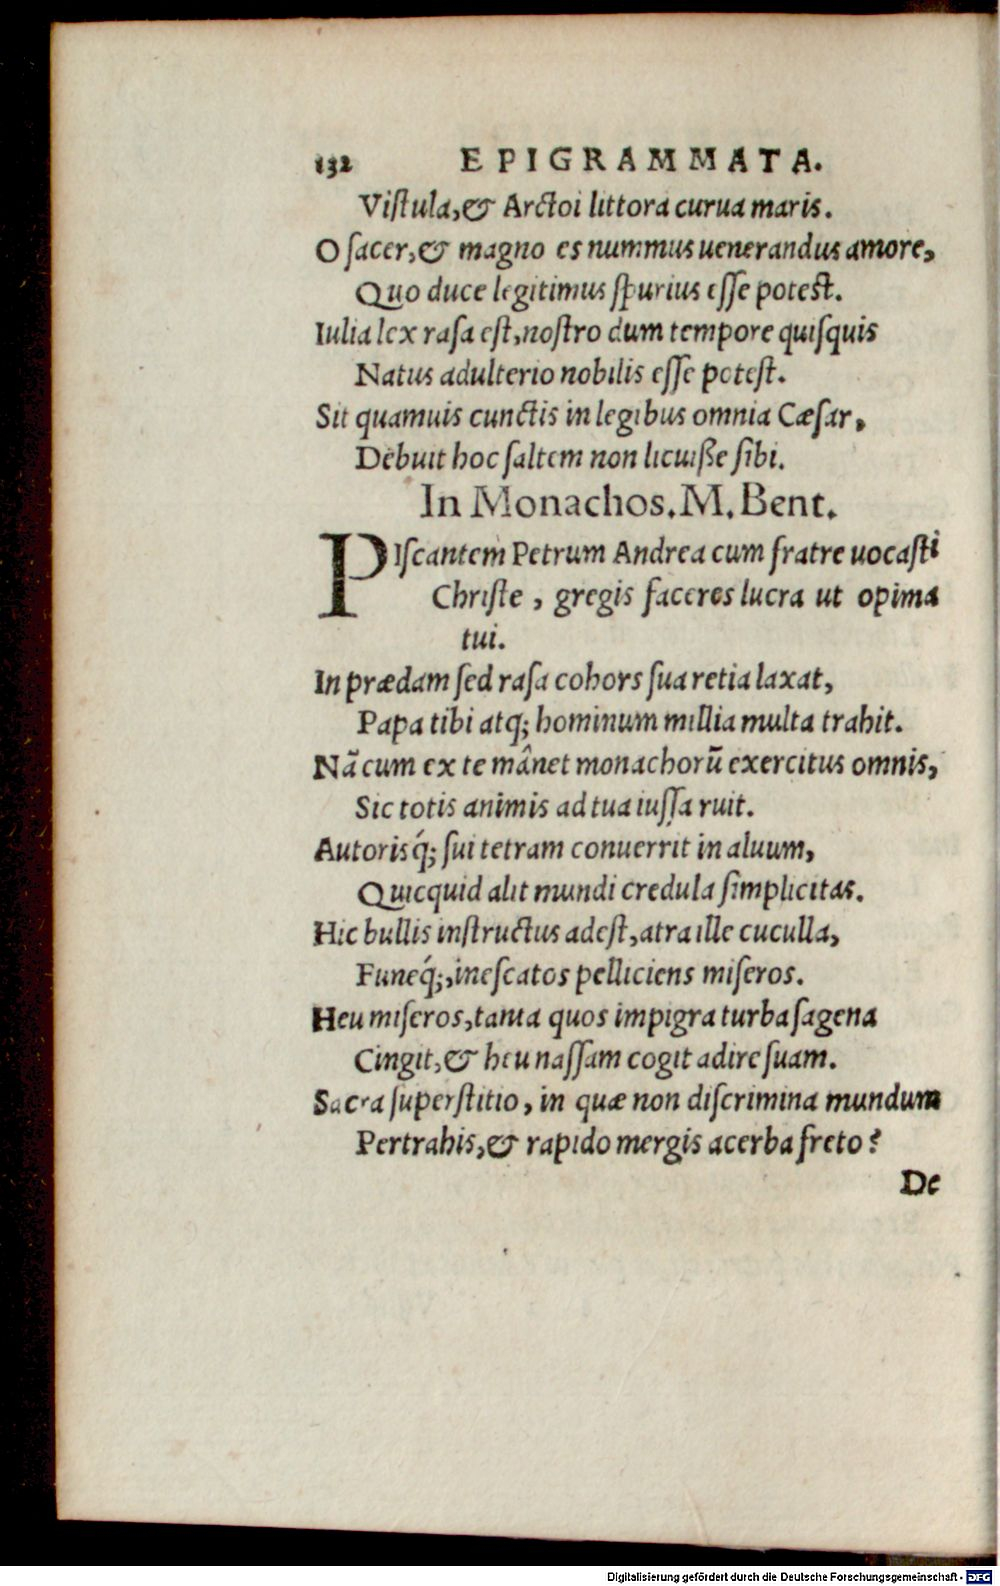 132 EPIGRAMMATA.
Viſtula, & Arctoi littora curua maris.
O ſacer, & magno es nummus uenerandus amore,
Quo duce legitimus ſpurius eſſe poteſt.
Iulia lex raſa eſt, noſtro dum tempore quiſquis
Natus adulterio nobilis eſſe poteſt.
Sit quamuis cunctis in legibus omnia Cæſar,
Debuit hoc ſaltem non licuiße ſibi.
In Monachos. M. Bent.
PIſcantem Petrum Andrea cum fratre uocaſti
Chriſte, gregis faceres lucra ut opima
tui.
In prædam ſed raſa cohors ſua retia laxat,
Papa tibi atq; hominum millia multa trahit.
Nã cum ex te mânet monachorũ exercitus omnis,
Sic totis animis ad tua iuſſa ruit.
Autorisq́; ſui tetram conuerrit in aluum,
Quicquid alit mundi credula ſimplicitas.
Hic bullis inſtructus adeſt, atra ille cuculla,
Funeq́;, ineſcatos pelliciens miſeros.
Heu miſeros, tanta quos impigra turba ſagena
Cingit, & heu naſſam cogit adire ſuam.
Sacra ſuperſtitio, in quæ non diſcrimina mundum
Pertrahis, & rapido mergis acerba freto?
De
Digitalisierung gefördert durch die Deutsche Forschungsgemeinschaft - DFG